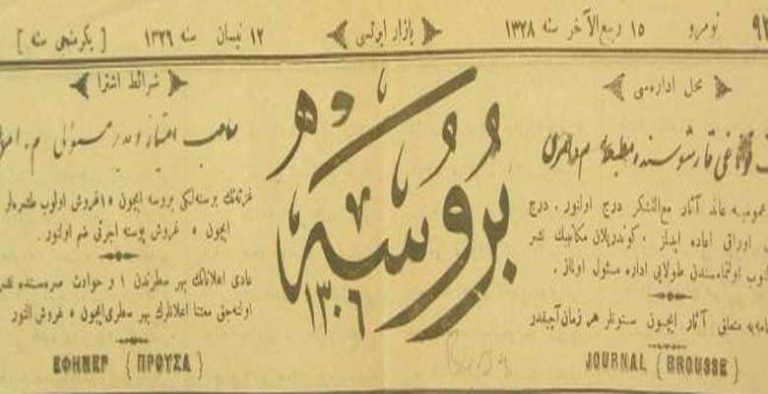 نومرو
١٥ ربیع الآخر سنه ١٣٢٨
بازار ایرتسی
١٢ نیسان سنه ١٣٢٦
[ یكرمنجی سنه ]
محل اداره‌سی
عمومیه عائد آثار مع‌التشكر درج اولنور . درج
اوراق اعاده ایدلمز . كوندریلان مكاتیبك نشر
اولنماسندن طولایی اداره مسئول اولماز .
متعلق آثار ایچون ستونلر هر زمان آچیقدر
JOURNAL { BROUSSE }
بروسه
١٣٠٦
شرائط اشترا
صاحب امتیاز و مدیر مسئولی م .
غزته‌نك برسنه‌لكی بروسه ایچون ١٥ غروش اولوب طشره‌لر
ایچون ٥ غروش پوسته اجرتی ضم اولنور .
عادی اعلاناتك بهر سطرندن ١ و حوادث صره‌سنده نشر
اولنه‌جق معتنا اعلاناتك بهر سطری ایچون ٥ غروش آلنور
ΕΦΗΜΕΡ { ΠΡΟΥΣΑ }